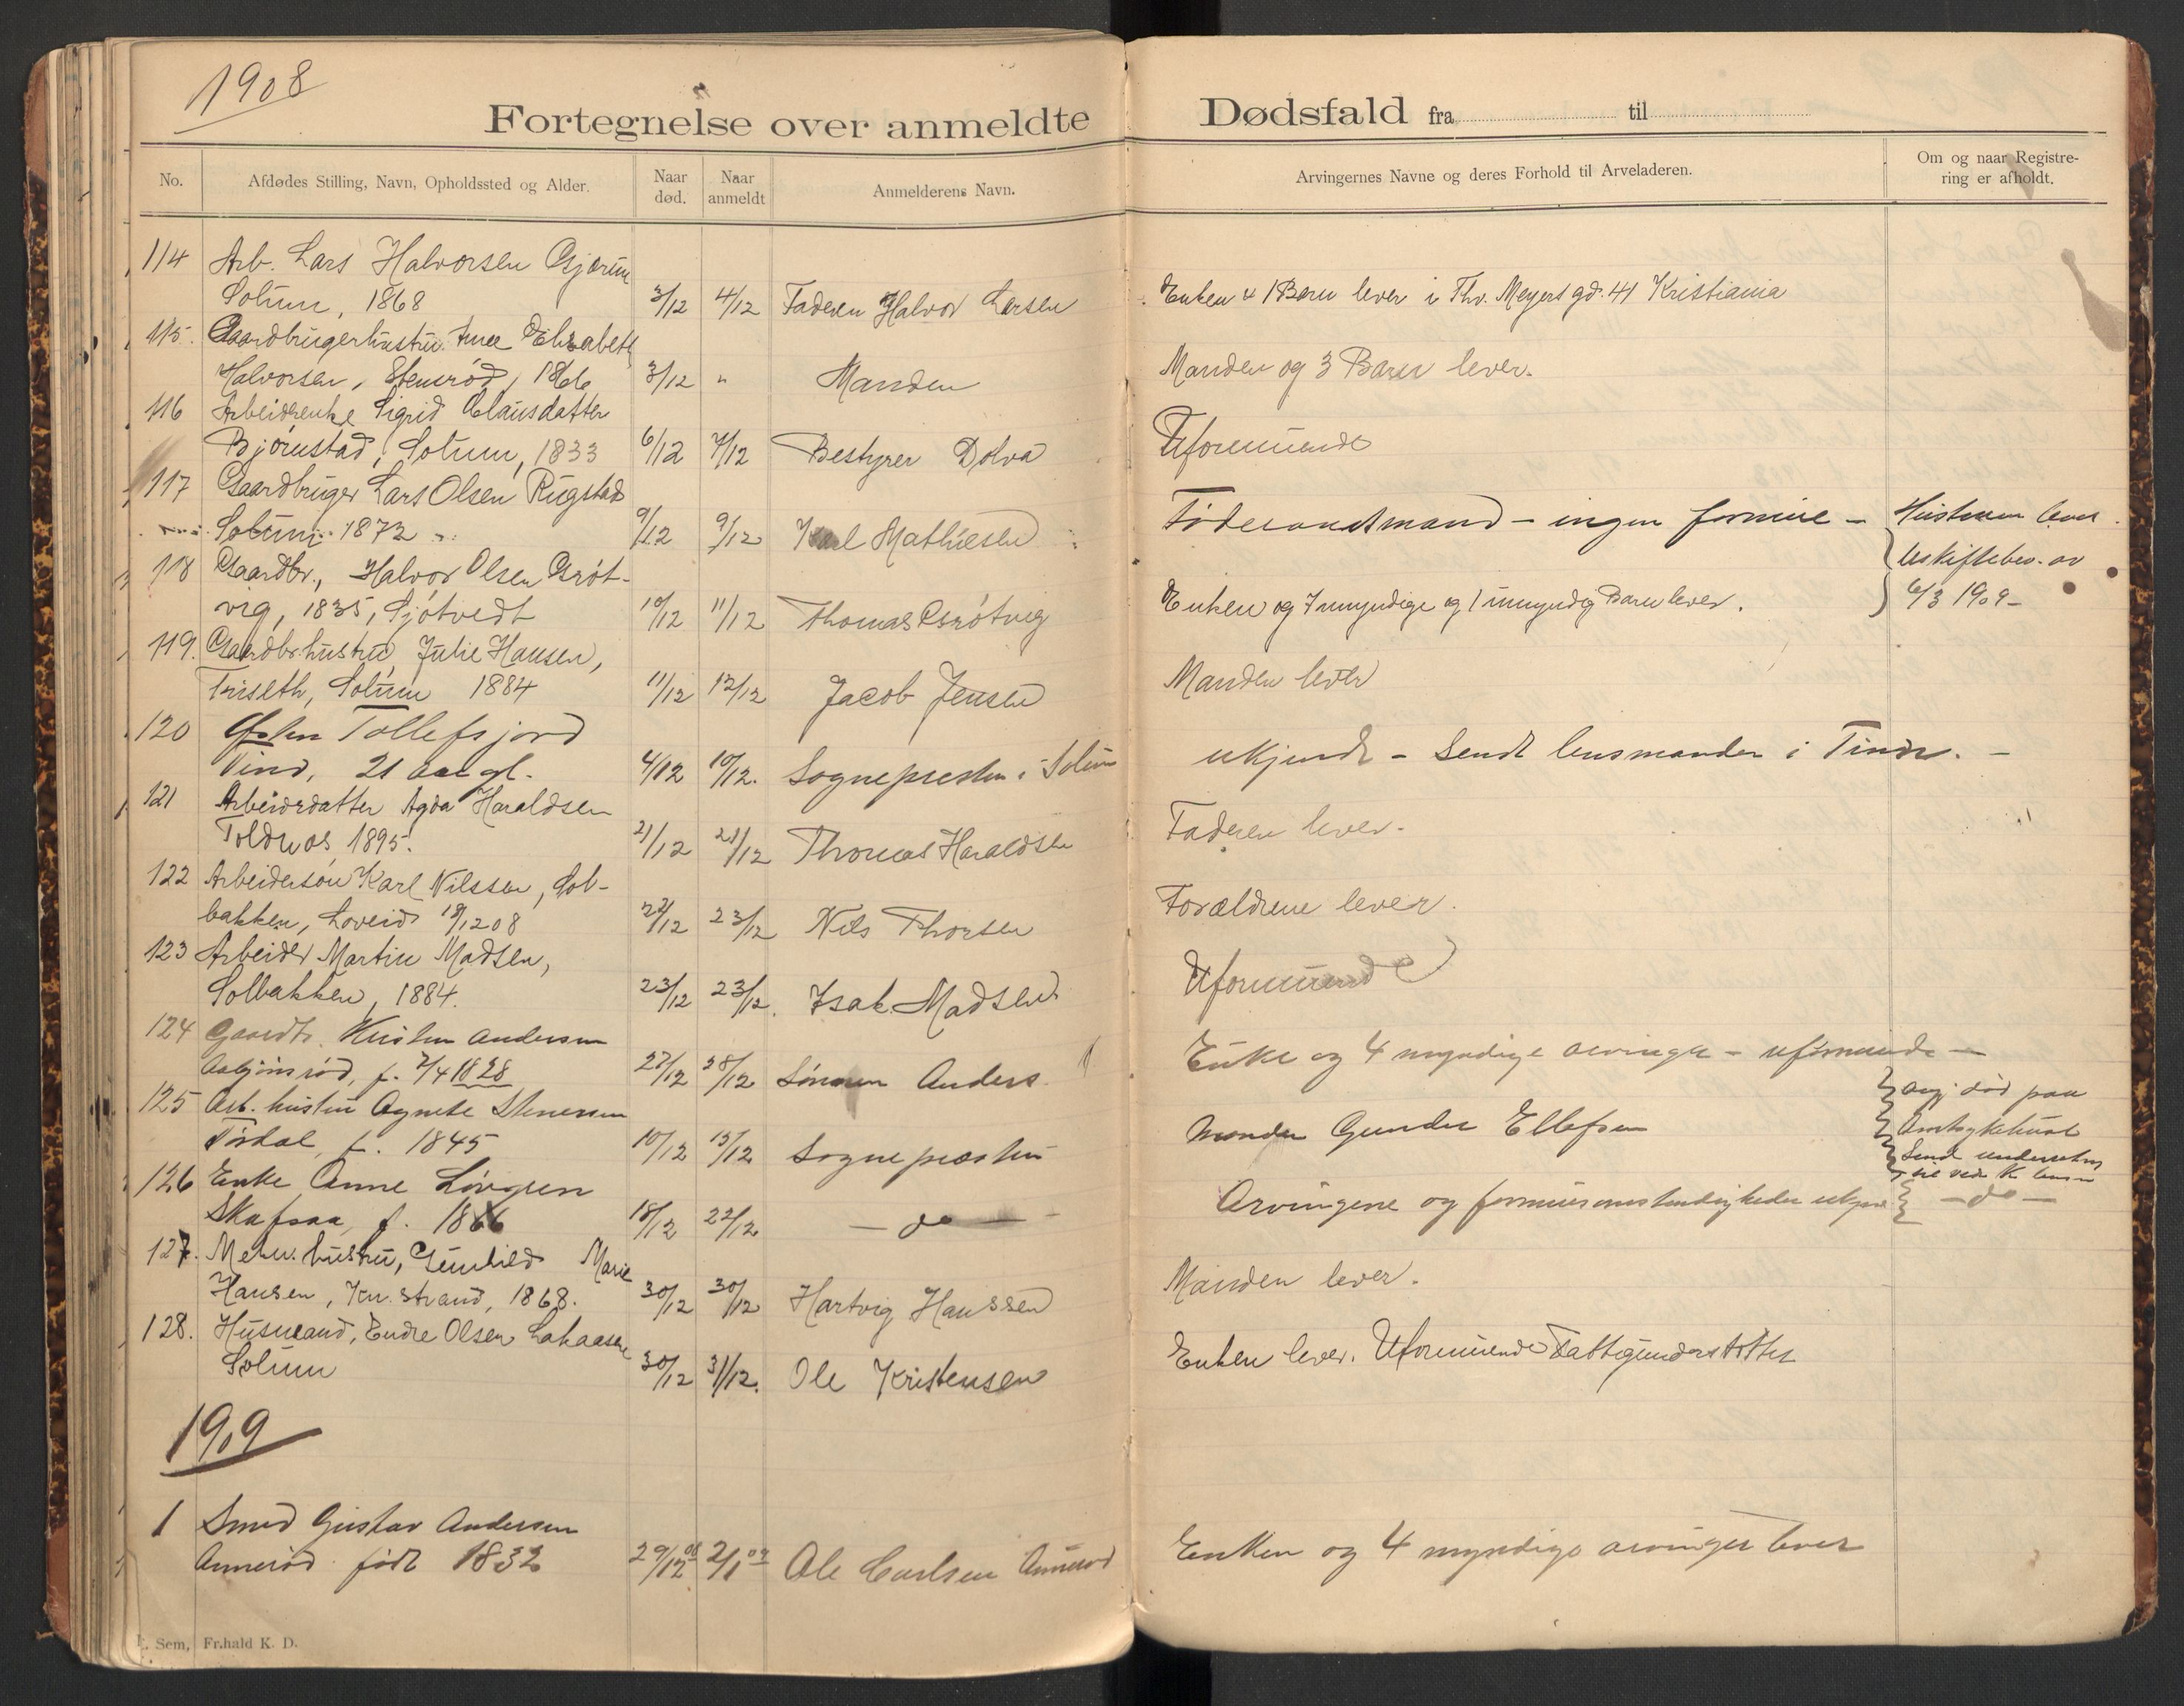 1908
Fortegnelse over anmeldte Dødsfald fra til
No.
Afdødes Stilling, Navn, Opholdssted og Alder.
Naar død.
Naar anmeldt
Anmelderens Navn.
Arvingernes Navne og deres Forhold til Arveladeren.
Om og naar Registre-
ring er afholdt.
114 Arb. Lars Halvorsen Gjerum
Solum, 1868 3/12 4/12 Faderen Halvor Larsen Enken & 1 Barn lever i Thv. Meyers gd. 41 Kristiania
115. Gaardbrugerhustru Anne Elisabeth
Halvorsen, Stensrød, 1866 3/12 " Manden Manden og 3 Barn lever.
116 Arbeiderenke Sigrid Clausdatter
Bjørnstad, Solum, 1833 6/12 7/12 Bestyrer Dolva Uformuende
117 Gaardbruger Lars Olsen Rugstad
Solum 1872 9/12 9/12 Karl Mathiesen Føderaadsmand - ingen formue - Hustruen lever.
Uskiftebev. av
118 Gaardbr., Halvor Olsen Grøt-
vig, 1835, Sjøtvedt 10/12 11/12 Thomas Grøtvig Enken og 7 myndige og 1 umyndig Barn lever. 6/3 1909-
119. Gaardbr.hustru, Julie Hansen,
Triseth, Solum 1884 11/12 12/12 Jacob Jensen Manden lever
120 Tollefsjord
21 aar gl. 4/12 10/12. Sognepresten i Solum ukjendt - Sendt lensmanden i Tinds. -
121 Arbeiderdatter Agda Haraldsen
Toldnæs 1895. 21/12 21/12 Thomas Haraldsen Faderen lever.
122 Arbeidersøn Karl Nilssen, Sol-
bakken, Loveid 19/12 08 22/12 23/12 Nils Thorsen Forældrene lever.
123 Arbeider Martin Madsen,
Solbakken, 1884. 23/12 23/12. Isak Madsen Uformuende
124 Gaardbr. Kristen Andersen
Asbjørnrød, f. 7/4 1828 27/12 28/12 Sønnen Anders Enke og 4 myndige arvinger - uformuende -
125 Arb. hustru Agnete Stenersen
Tørdal, f. 1845 10/12 15/12 Sognepræsten Manden Gunder Ellefsen Avg. død paa
Amtssykehuset
Send
126 Enke Anne Løvgren
Skafsaa, f. 1866 18/12 22/12 - do - Arvingene og formuesomstendigheder ukjend - do -
127. hustru, Gunhild Marie
Hansen, Kn. strand, 1868. 30/12 30/12 Hartvig Hanssen Manden lever.
128. Husmand, Endre Olsen Lakaasen
Solum 30/12 31/12. Ole Kristensen Enken lever. Uformuende Fattigunderstøttet
1909
1 Smed Gustav Andersen
Annerød født 1832 29/12 08 2/1 09 Ole Carlsen Annerød Enken og 4 myndige arvinger lever
Sem, Fr.hald K. D.